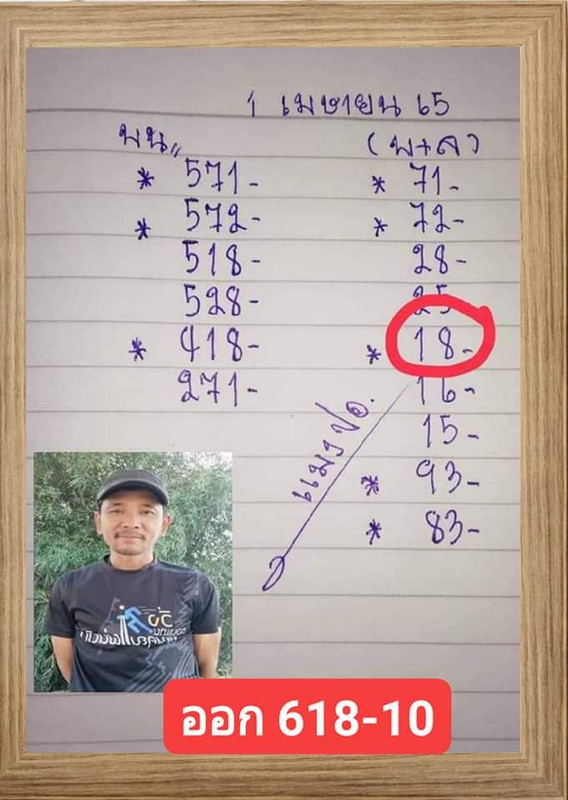 1 เมษายน 65
บน,, (บ+ล)
* 571- * 71-
* 572- * 72-
518- 28-
528- 25
* 418- * 18-
271- 16-
15-
* 93-
* 83-
แมงปอ.
วิ่ง
ออก 618-10